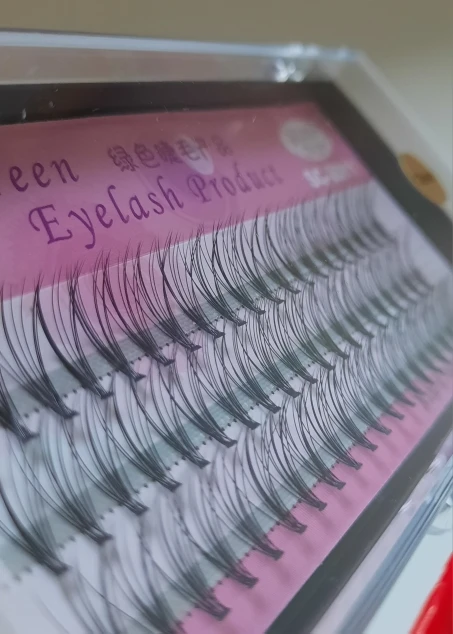 een 绿色睫毛产品
Eyelash Product